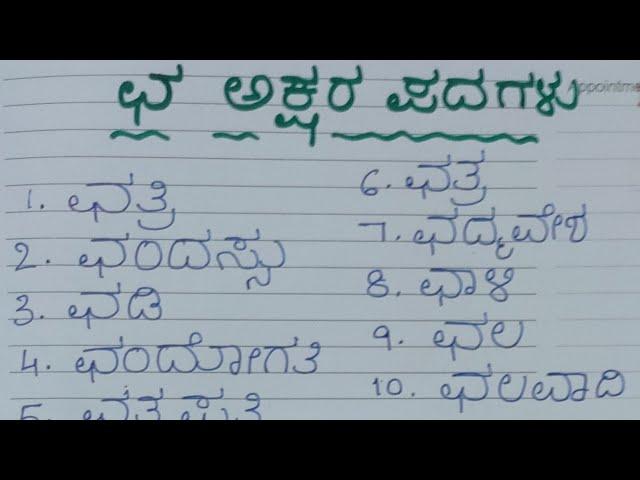 ಛ ಅಕ್ಷರ ಪದಗಳು
1. ಛತ್ರಿ
2. ಛಂದಸ್ಸು
3. ಛಡಿ
4. ಛಂದೋಗತಿ
5. ಛತ್ರಪತಿ
6. ಛತ್ರ
7. ಛದ್ಮವೇಶ
8. ಛಾಳಿ
9. ಛಲ
10. ಛಲವಾದಿ